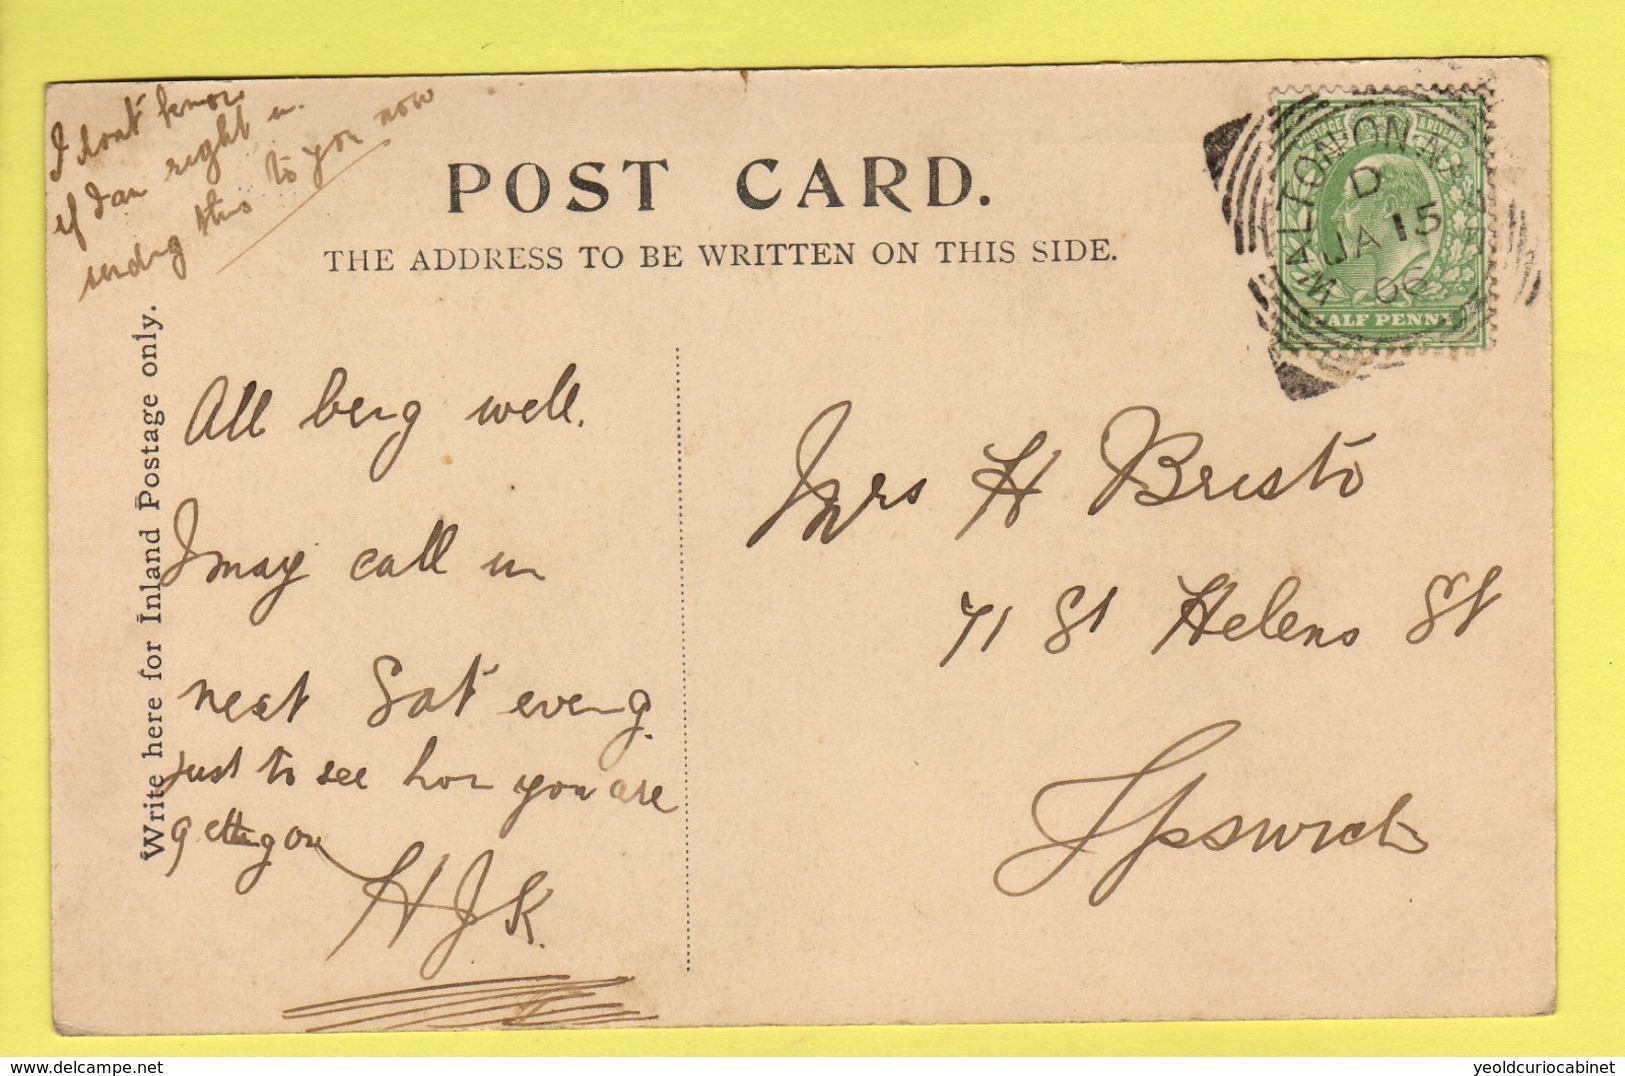 I dont know
if I am right in
sending this to you now
POST CARD.
THE ADDRESS TO BE WRITTEN ON THIS SIDE.
Write here for Inland Postage only.
All being well.
I may call in
next Sat eveng.
just to see how you are
getting on
H J K.
Mrs H Bristo
71 St Helens St
Ipswich
WALTON-ON-
D
JA 15
06
POSTAGE & REVENUE
HALF PENNY
delcampe.net
yeoldcuriocabinet